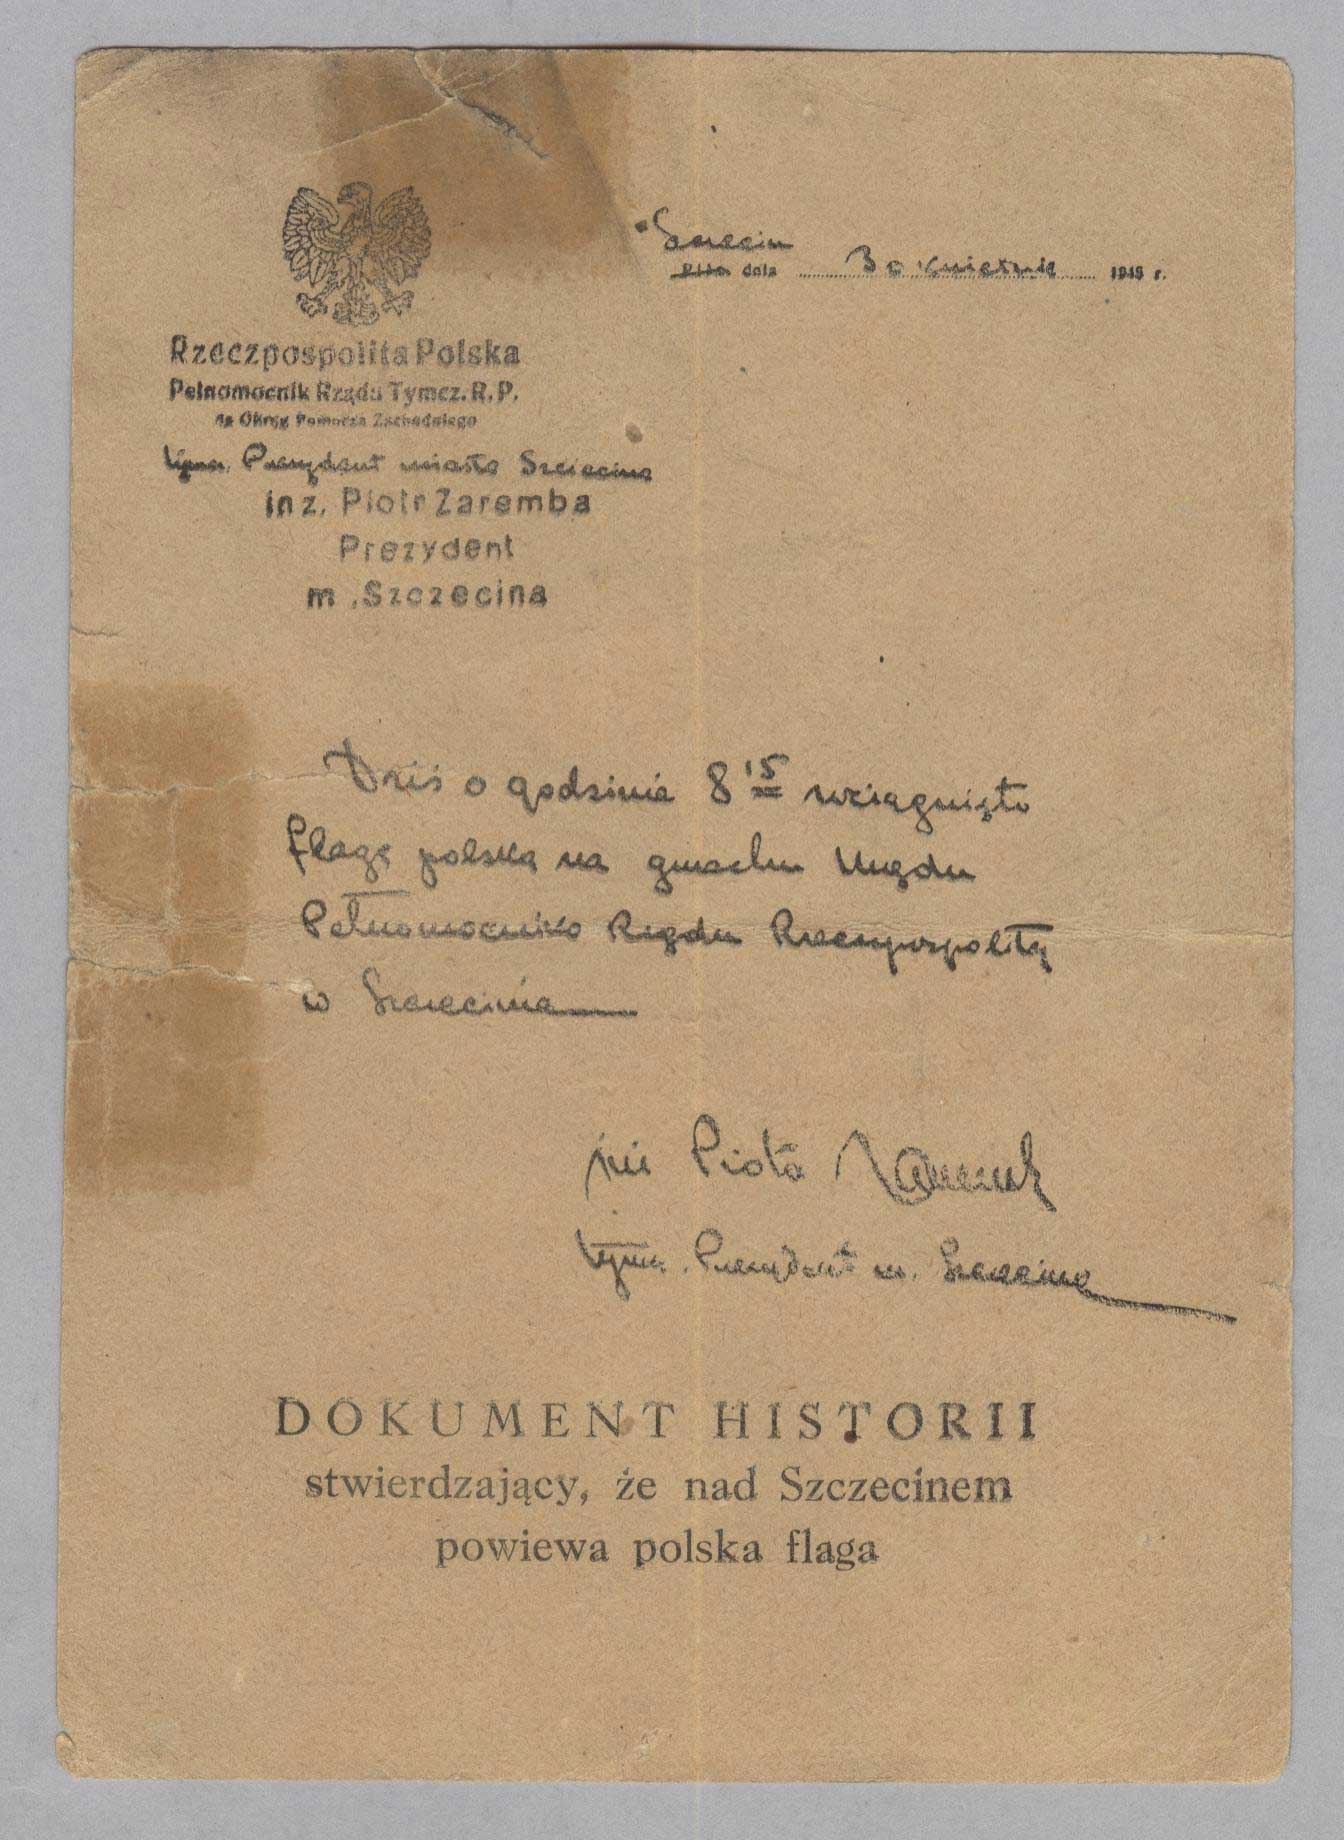 Szczecin
Piła dnia 30 kwietnia 1945 r.
Rzeczpospolita Polska
Pełnomocnik Rządu Tymcz. R. P.
na Okręg Pomorza Zachodniego
tymcz. Prezydent miasta Szczecina
inż. Piotr Zaremba
Prezydent
m. Szczecina
Dziś o godzinie 8 15 wciągnięto
flagę polską na gmachu Urzędu
Pełnomocnika Rządu Rzeczypospolitej
w Szczecinie
inż Piotr Zaremba
tymcz. Prezydent m. Szczecina
DOKUMENT HISTORII
stwierdzający, że nad Szczecinem
powiewa polska flaga